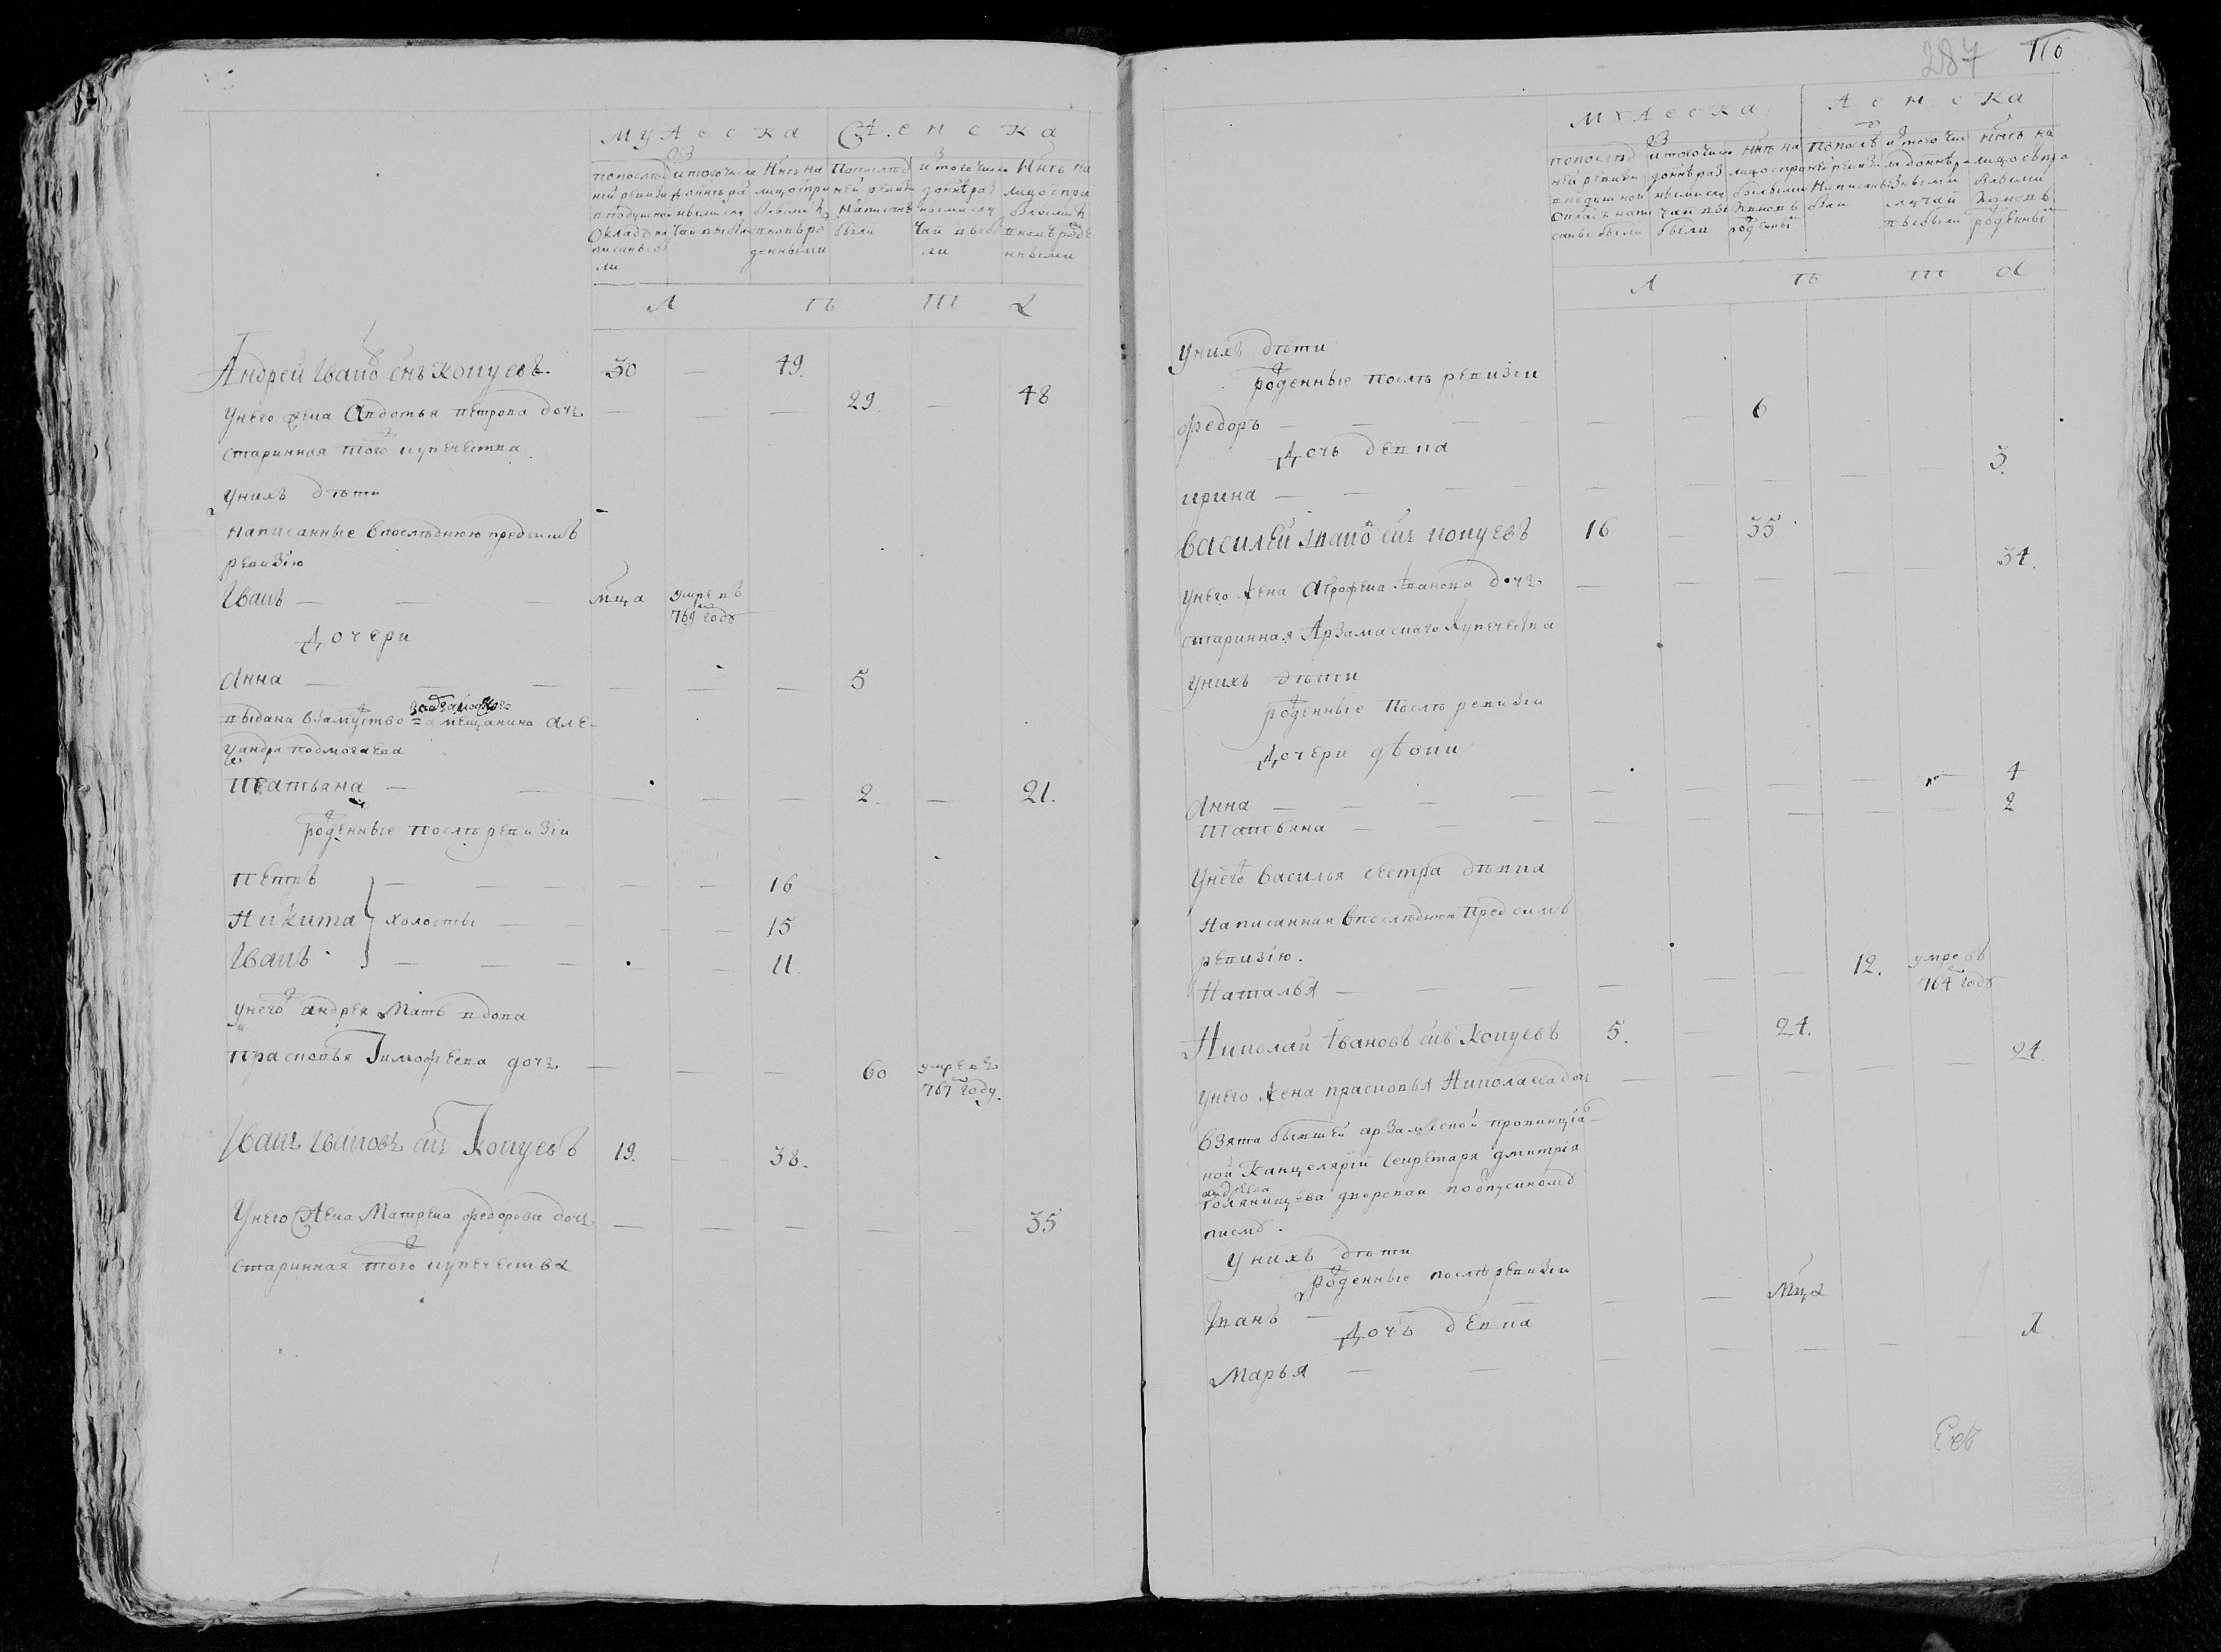 мужеска женска
по последней ревизии в подушной окладъ написаны были
и того числа до ныне разными случаи выбыли
Ныне на лицо с прибылыми и вновь рожденными
По последней ревизи написаны были
и того числа до ныне разными случаи выбыли
Ныне на лицо с прибылыми и вновь рожденными
Л ѣ т а
Андрей Ивановъ снъ Коцуевъ 30 — 49
у него жена Авдотья Петрова дочь — — — 29 — 48
старинная того купечества
у нихъ дѣти
написанные в последнюю предъ симъ
ревизию
Иванъ — — — мца умре въ 769 году
Дочери
Анна — — — — — — 5
выдана в замужство за мещанина Але-
Татьяна — — — — — 2 — 21
рожденные после ревизии
Петръ — — — — — 16
Никита холосты — — — — 15
Иванъ — — — — — 11
у него андрея мать вдова
Прасковья Тимофеева дочь — — — 60 умре въ 767 году
Иванъ Ивановъ снъ Коцуевъ 19 — 38
У него жена Матрена Федорова дочь — — — — — 35
старинная того купечества
287 116
мужеска женска
по последней ревизии в подушной окладъ написаны были
и того числа до ныне разными случаи выбыли
ныне на лицо с прибылыми и вновь рожденные
по последней ревизи написаны были
и того числа до ныне разными случаи выбыли
ныне на лицо с прибылыми и вновь рожденные
Л ѣ т а
у нихъ дѣти
рожденные после ревизии
Федоръ — — — — — — 6
Дочь девка
Ирина — — — — — — — — — 3
Василей Ивановъ снъ Коцуевъ 16 — 35
у него жена Аграфена Иванова дочь — — — — — 34
старинная Арзамаского купечества
у нихъ дѣти
рожденные после ревизии
Дочери двойни
Анна — — — — — — — — — 4
Татьяна — — — — — — — — 2
у него Василья сестра девка
Написанная в последнюю предъ симъ
ревизию
Наталья — — — — — — — 12 умре въ 764 году
Николай Ивановъ снъ Коцуевъ 5 — 24
у него жена Прасковья Николаева дочь — — — — — 24
Взята бывшей арзамаской провинциа-
ной канцелярии секретаря Дмитрия
писмо
у нихъ дѣти
рожденные после ревизии
Иванъ — — — мца
Дочь девка
Марья — — — — — — — 1